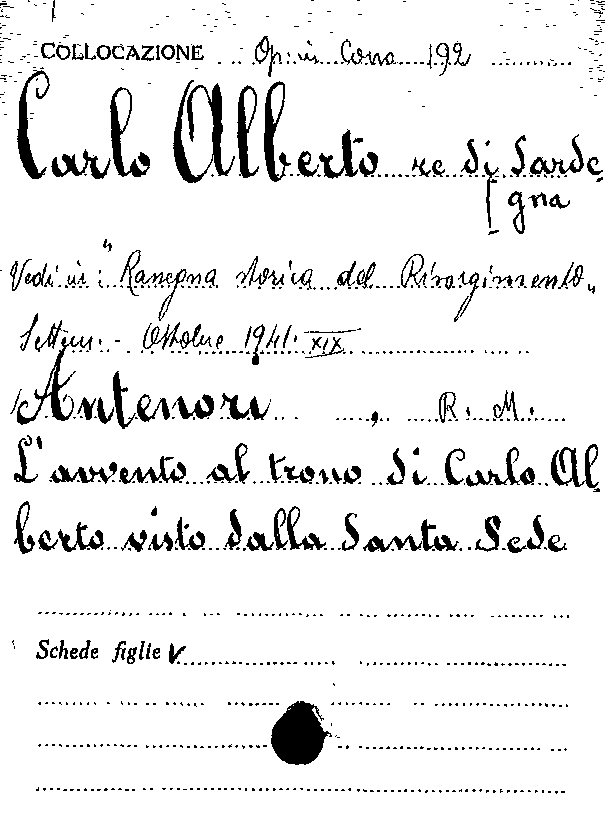 COLLOCAZIONE Op. in Cons 192
Carlo Alberto re di Sarde
[gna
Vedi in: "Rassegna storica del Risorgimento"
Settem. - Ottobre 1941. XIX
Antenori , R. M.
L'avvento al trono di Carlo Al
berto visto dalla Santa Sede
Schede figlie v